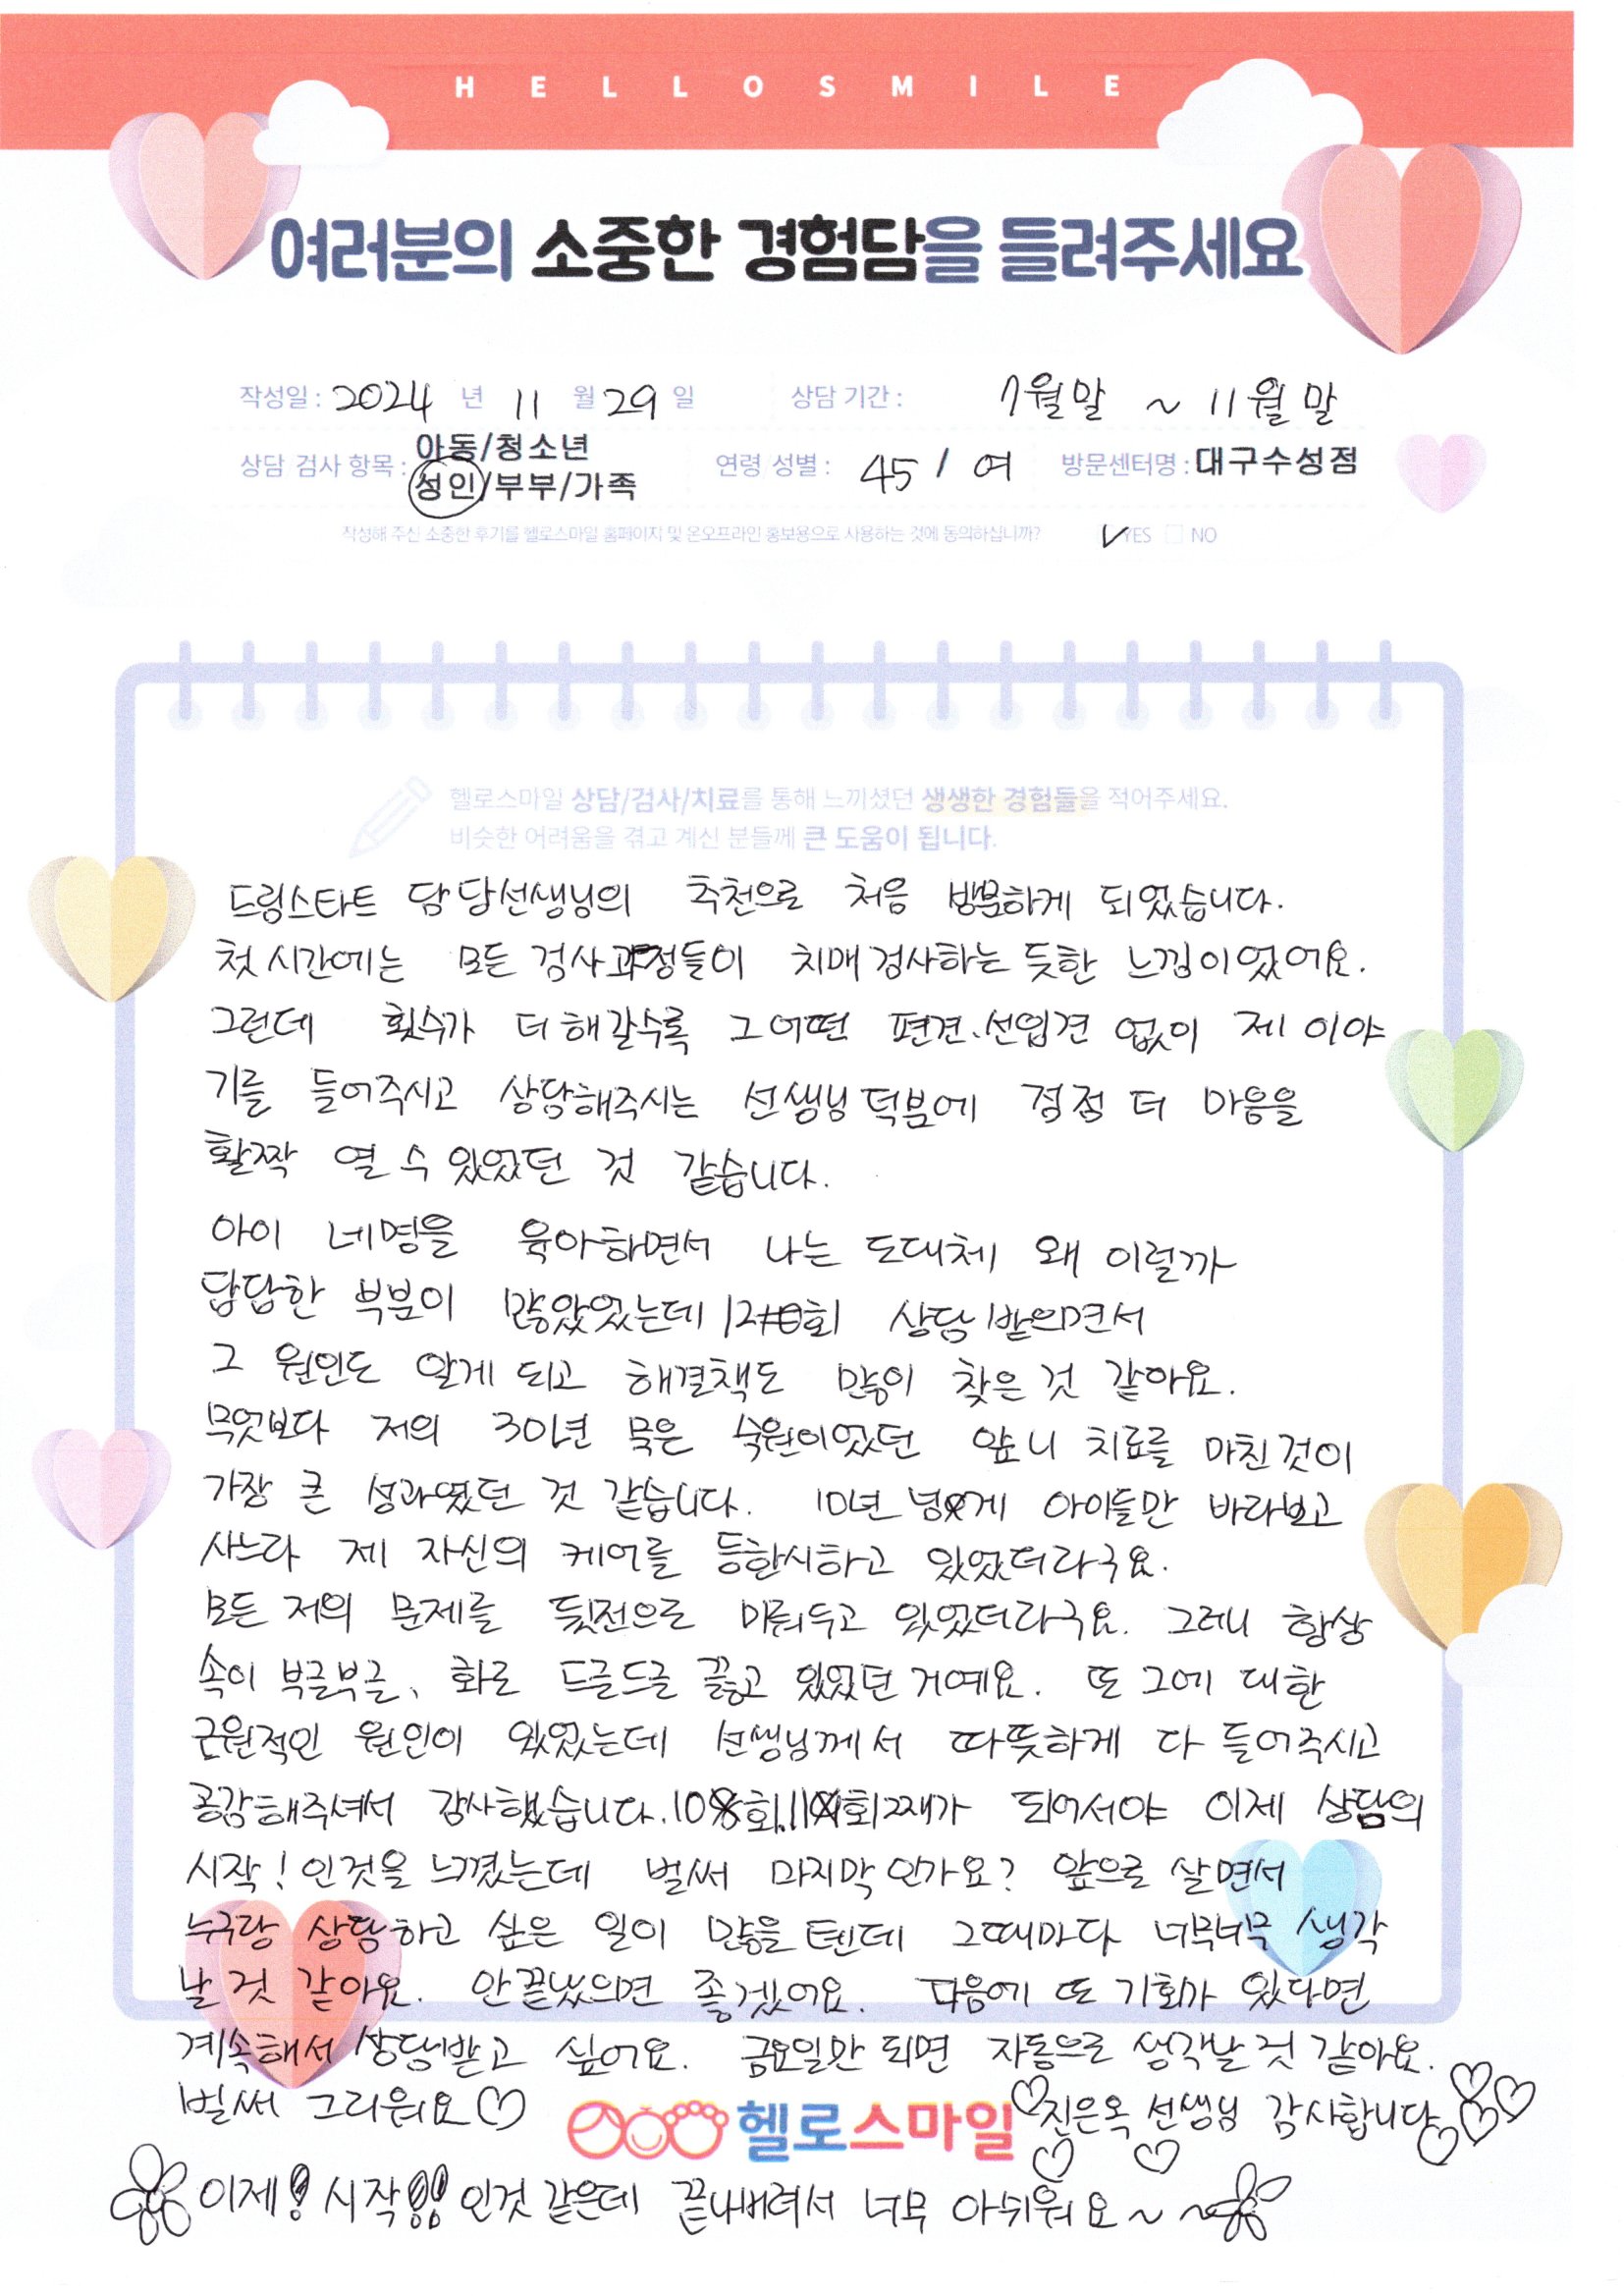 HELLOSMILE
여러분의 소중한 경험담을 들려주세요
작성일 : 2024 년 11 월 29 일 상담 기간 : 7월말 ~ 11월 말
상담 검사 항목 : 아동/청소년 성인/부부/가족 연령 성별 : 45 / 여 방문센터명 : 대구수성점
작성해 주신 소중한 후기를 헬로스마일 홈페이지 및 온오프라인 홍보용으로 사용하는 것에 동의하십니까? YES NO
헬로스마일 상담/검사/치료를 통해 느끼셨던 생생한 경험들을 적어주세요.
비슷한 어려움을 겪고 계신 분들께 큰 도움이 됩니다.
드림스타트 담당선생님의 추천으로 처음 방문하게 되었습니다.
첫 시간에는 모든 검사과정들이 치매검사하는 듯한 느낌이었어요.
그런데 횟수가 더해갈수록 그 어떤 편견.선입견 없이 제 이야
기를 들어주시고 상담해주시는 선생님 덕분에 점점 더 마음을
활짝 열 수 있었던 것 같습니다.
아이 네명을 육아하면서 나는 도대체 왜 이럴까
답답한 부분이 많았었는데 12회 상담받으면서
그 원인도 알게 되고 해결책도 많이 찾은 것 같아요.
무엇보다 저의 30년 묵은 숙원이었던 앞니 치료를 마친것이
가장 큰 성과였던 것 같습니다. 10년 넘게 아이들만 바라보고
사느라 제 자신의 케어를 등한시하고 있었더라구요.
모든 저의 문제를 뒷전으로 미뤄두고 있었더라구요. 그러니 항상
속이 부글부글, 화로 드글드글 끓고 있었던거예요. 또 그에 대한
근원적인 원인이 있었는데 선생님께서 따뜻하게 다 들어주시고
공감해주셔서 감사했습니다. 10회, 11회째가 되어서야 이제 상담의
시작! 인것을 느꼈는데 벌써 마지막인가요? 앞으로 살면서
누구랑 상담하고 싶은 일이 많을 텐데 그때마다 너무너무 생각
날 것 같아요. 안끝났으면 좋겠어요. 다음에 또 기회가 있다면
계속해서 상담받고 싶어요. 금요일만 되면 자동으로 생각날 것 같아요.
벌써 그리워요♡ 헬로스마일 ♡진은옥 선생님 감사합니다♡♡♡
이제! 시작!! 인것 같은데 끝나버려서 너무 아쉬워요~~